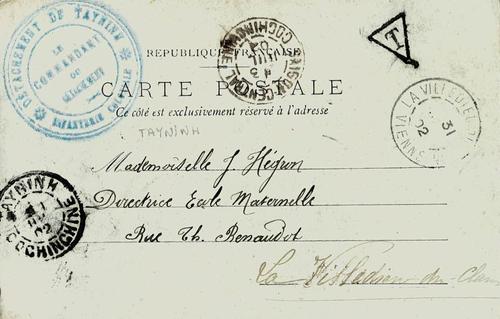 DETACHEMENT DE TAYNINH
LE
COMMANDANT
DU
DETACHEMENT
INFANTERIE COLONIALE
T
REPUBLIQUE FRANÇAISE
CARTE POSTALE
Ce côté est exclusivement réservé à l'adresse
SAIGON CENTRAL
COCHINCHINE
LA VILLEDIEU
VIENNE
31
02
TAYNINH
Mademoiselle J. Hégron
Directrice Ecole Maternelle
Rue Th. Renaudot
La Villedieu du Clain
TAYNINH
COCHINCHINE
02